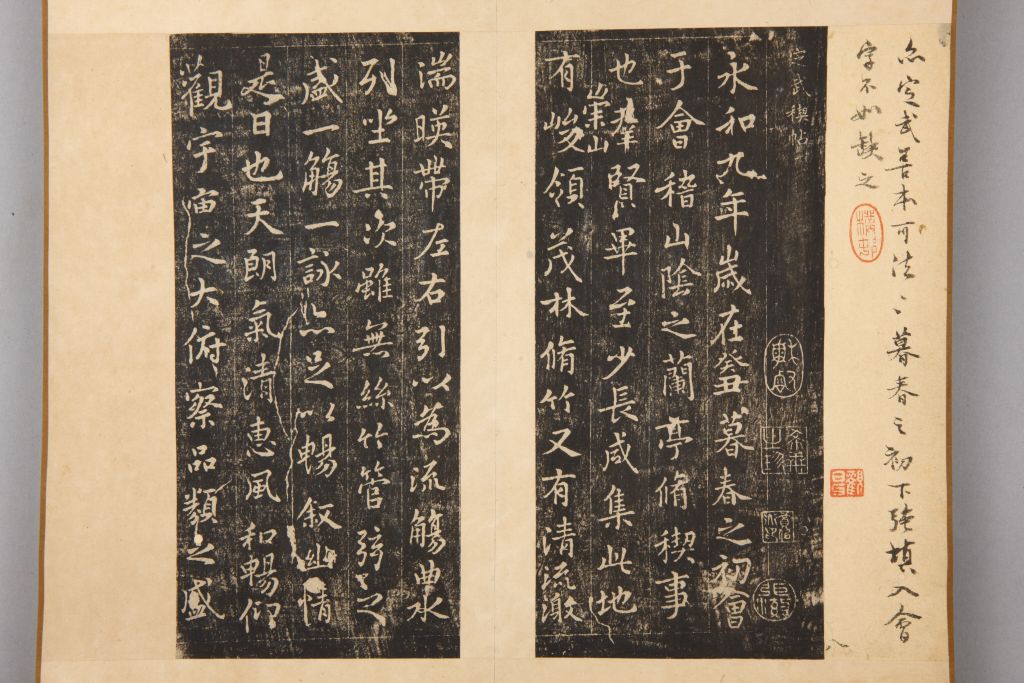 亦定武善本可法々暮春之初下強填入會
字不如缺之
定武稧帖
永和九年歲在癸丑暮春之初會
于會稽山陰之蘭亭脩稧事
也群賢畢至少長咸集此地
有崇山峻領茂林脩竹又有清流激
湍暎帶左右引以為流觴曲水
列坐其次雖無絲竹管弦之
盛一觴一詠亦足以暢叙幽情
是日也天朗氣清惠風和暢仰
觀宇宙之大俯察品類之盛